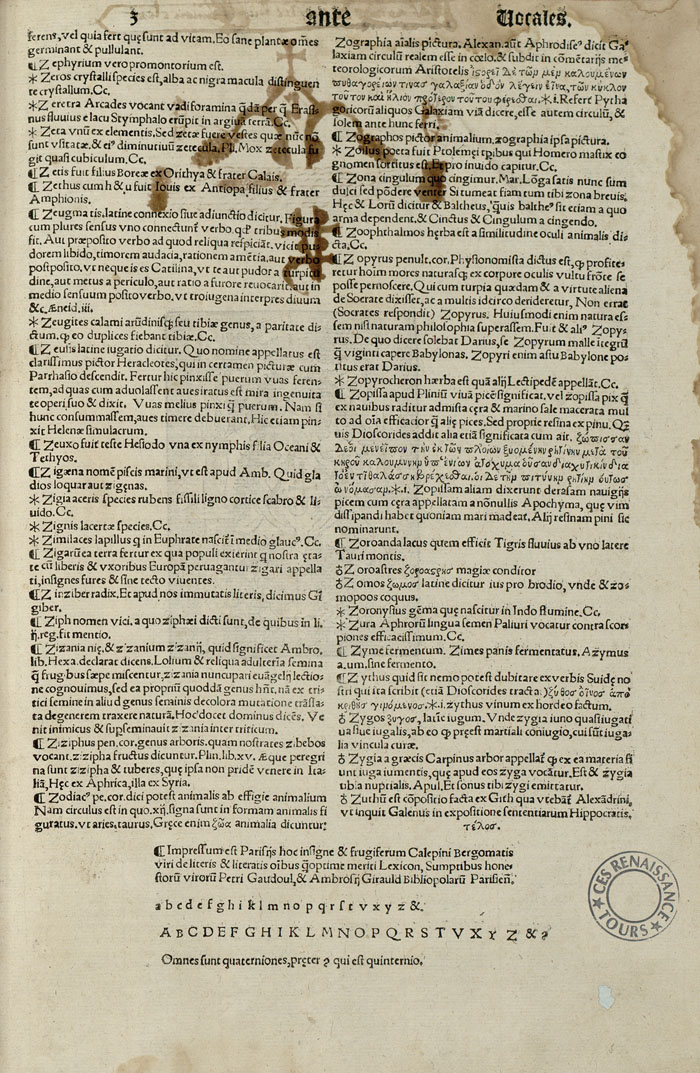 3 ante Vocales.
ferens, vel quia fert quę sunt ad vitam. Eo sane plantæ oms̄es
germinant & pullulant.
¶ Zephyrium vero promontorium est.
* Zeros crystalli species est, alba ac nigra macula distinguen
te crystallum. Cc.
* Zeretra Arcades vocant vadi foramina
nus fluuius e lacu Stymphalo erūpit in argiua terrā. Cc.
* Zeta vnū ex elementis. Sed zetæ fuere vestes quæ nūc nō
sunt vsitatæ, & ei⁹ diminutiū zetecula. Pli. Mox zetecula fu
git quasi cubiculum. Cc.
¶ Zetis fuit filius Boreæ ex Orithya & frater Calais.
¶ Zethus cum h & u fuit Iouis ex Antiopa filius & frater
Amphionis.
¶ Zeugma tis, latine connexio siue adiunctio dicitur. Figura
cum plures sensus vno connectunt̄ verbo, tribus modis
fit. Aut præposito verbo ad quod reliqua respiciāt. vicit pu
dorem libido, timorem audacia, rationem amētia, aut verbo
postposito, vt neque is es Catilina, vt te aut pudor a turpitu
dine, aut metus a periculo, aut ratio a furore reuocarit, aut in
medio sensuum posito verbo. vt troiugena interpres diuum
&c. Æneid. iii.
* Zeugites calami arūdinisqʒ seu tibiæ genus, a paritate di
ctum, ꝙ eo duplices fiebant tibiæ. Cc.
¶ Zeusis, latine iugatio dicitur. Quo nomine appellatus est
clarissimus pictor Heracleotes, qui in certamen picturæ cum
Parrhasio descendit. Fertur hic pinxisse puerum vuas feren
tem, ad quas cum aduolassent aues iratus est mira ingenuita
te operi suo & dixit. Vuas melius pinxi qʒ puerum. Nam si
hunc consummassem, aues timere debuerant. Hic etiam pin
xit Helenæ simulacrum.
¶ Zeuxo fuit teste Hesiodo vna ex nymphis filia Oceani &
Tethyos.
¶ Zigæna nomē piscis marini, vt est apud Amb. Quid gla
dios loquar aut zigenas.
* Zigia aceris species rubens fissili ligno cortice scabro & li
uido. Cc.
* Zignis lacertæ species. Cc.
* Zimilaces lapillus q in Euphrate nascit̄ ī medio glauc⁹. Cc.
¶ Zigarū ea terra fertur ex qua populi exierint q nostra ęta
te cū liberis & vxoribus Europā peruagantur zigari appella
ti, insignes fures & sine tecto viuentes.
¶ Zinziber radix. Et apud nos immutatis literis, dicimus Gī
giber.
¶ Ziph nomen vici. a quo ziphæi dicti sunt, de quibus in li.
ij. reg. fit mentio.
¶ Zizania nię, & zizanium zizanij, quid significet Ambro.
lib. Hexa. declarat dicens. Lolium & reliqua adulterīa semina
q̄ frugibus sæpe miscentur, zizania nuncupari euāgelij lectio
ne cognouimus, sed ea propriū quoddā genus hn̄t, nā ex tri
tici semine in aliud genus seminis decolora mutatione trāsla
ta degenerem traxere naturā. Hoc docet dominus dicēs. Ve
nit inimicus & supseminauit zizania inter triticum.
¶ Ziziphus pen. cor. genus arboris. quam nostrates zibebos
vocant. zizipha fructus dicuntur. Plin. lib. xv. Æque peregri
na sunt zizipha & tuberes, quę ipsa non pridē venere in Ita
liā, Hęc ex Aphrica, illa ex Syria.
¶ Zodiac⁹ pe. cor. dici potest animalis ab effigie animalium
Nam circulus est in quo. xij. signa sunt in formam animalis fi
guratus. vt aries, taurus. Gręce enim ζῶα animalia dicuntur.
Zographia aīalis pictura. Alexan. aūt Aphrodise⁹ dicit Ga
laxiam circulū realem esse in cœlo. & subdit in cōmētarijs me
teorologicorum Aristotelis
.i. Refert Pytha
goricorū aliquos Galaxiam viā dicere, esse autem circulū, &
solem ante hunc ferri.
¶ Zographos pictor animalium, zographia ipsa pictura.
* Zoilus poeta fuit Ptolemei tpibus qui Homero mastix co
gnomen sortitus est. Et pro inuido capitur. Cc.
¶ Zona cingulum quo cingimur. Mar. Lōga satis nunc sum
dulci sed pōdere venter Si tumeat fiam tum tibi zona breuis.
Hęc & Lorū dicitur & Baltheus, quis balthe⁹ sit etiam a quo
arma dependent. & Cinctus & Cingulum a cingendo.
¶ Zoophthalmos hęrba est a similitudine oculi animalis di
cta. Cc.
¶ Zopyrus penult. cor. Physionomista dictus est, ꝙ profite
retur hoim mores naturasqʒ ex corpore oculis vultu frōte se
posse pernoscere. Qui cum turpia quædam & a virtute aliena
de Socrate dixisset, ac a multis idcirco derideretur, Non errat
(Socrates respondit) Zopyrus. Huiusmodi enim natura es
sem nisi naturam philosophia superassem. Fuit & ali⁹ Zopy
rus. De quo dicere solebat Darius, se Zopyrum malle itegrū
qʒ viginti capere Babylonas. Zopyri enim astu Babylone po
titus erat Darius.
* Zopyrocheron hærba est quā alij Lectipedē appellāt. Cc.
¶ Zopissa apud Pliniū viuā picē significat, vel zopissa pix q̄
ex nauibus raditur admista cęra & marino sale macerata mul
to ad oīa efficacior qʒ alię pices. Sed proprie resina ex pinu. Qʒ
uis Dioscorides addit alia etiā significata cum ait.
.i. Zopissam aliam dixerunt derasam nauigijs
picem cum cera appellatam a nōnullis Apochyma, quę vim
dissipandi habet quoniam mari madeat. Alij resinam pini sic
nominarunt.
¶ Zoroanda lacus quem efficit Tigris fluuius ab vno latere
Tauri montis.
Zoroastres magiæ conditor
Zomos ζωμος latine dicitur ius pro brodio, vnde & zo
mopoos coquus.
* Zoronysius gēma quę nascitur in Indo flumine. Cc.
* Zura Aphrorū lingua semen Paliuri vocatur contra scor
piones efficacissimum. Cc.
¶ Zyme fermentum. Zimes panis fermentatus. Azymus
a. um. sine fermento.
¶ Zythus quid sit nemo potest dubitare ex verbis Suidę no
stri qui ita scribit (etiā Dioscorides tracta.) ζύθος οἶνος ἀπὸ
κριθῆς γινόμενος. .i. zythus vinum ex hordeo factum.
Zygos ζυγος, latine iugum. Vnde zygia iuno quasi iugati
ua siue iugalis, ab eo ꝙ pręest martiali coniugio, cui sūt iuga
lia vincula curæ.
Zygia a græcis Carpinus arbor appellat̄ ꝙ ex ea materia si
unt iuga iumentis, quę apud eos zyga vocātur. Est & zygia
tibia nuptialis. Apul. Et sonus tibi zygi emittatur.
Zuthū est cōpositio facta ex Gith qua vtebāt̄ Alexādrini,
vt inquit Galenus in expositione sententiarum Hippocratis.
τέλος.
¶ Impressum est Parisijs hoc insigne & frugiferum Calepini Bergomatis
viri de literis & literatis oībus qʒoptime meriti Lexicon, Sumptibus hone
stiorū virorū Petri Gaudoul, & Ambrosij Girauld Bibliopolarū Parisień.
a b c d e f g h i k l m n o p q r s t v x y z &.
A B C D E F G H I K L M N O P Q R S T V X Y Z & ?
Omnes sunt quaterniones, pręter ? qui est quinternio.
CES RENAISSANCE
TOURS